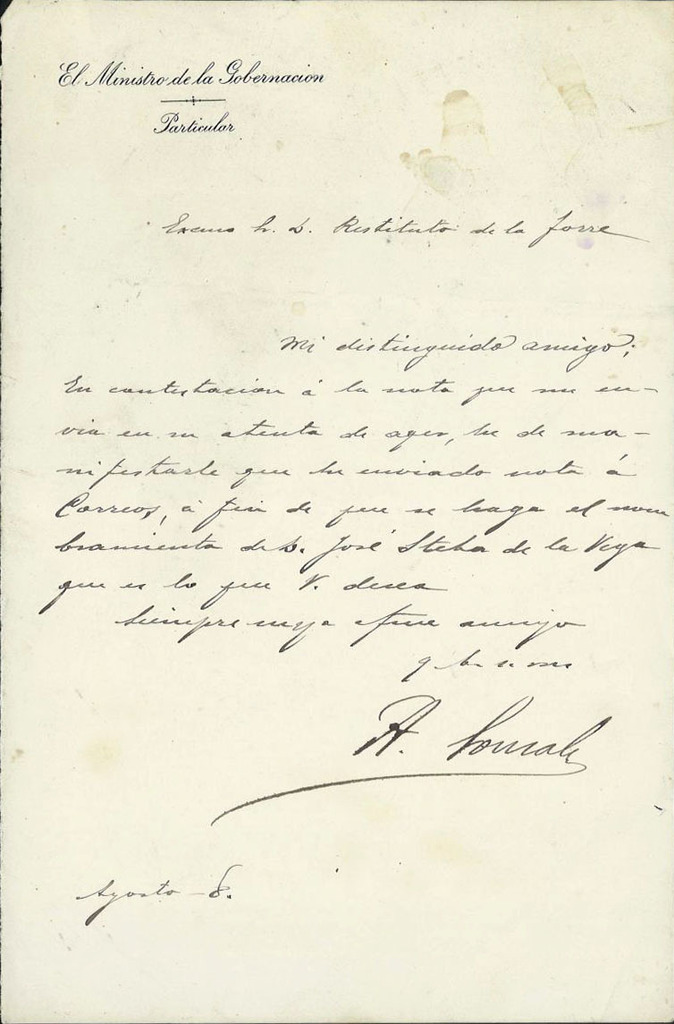 El Ministro de la Gobernacion
Particular
Excmo Sr. D. Restituto de la Torre
Mi distinguido amigo;
En contestacion á la nota que me en-
via en su atenta de ayer, he de ma-
nifestarle que he enviado nota á
Correos, á fin de que se haga el nom
bramiento de D. José de la Vega
que es lo que V. desea
Siempre suyo afmo amigo
q b s m
A. Gonzalez
Agosto - 8.